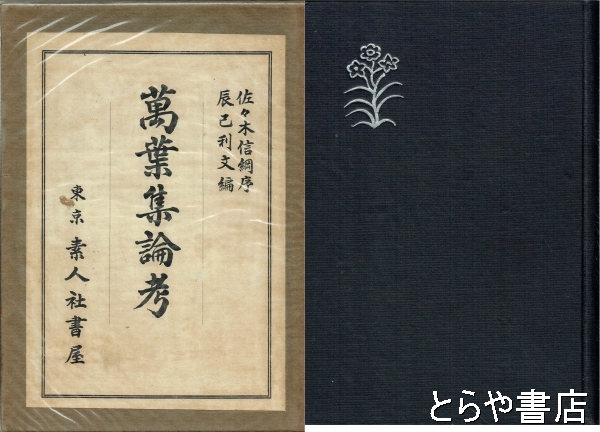 佐々木信綱序
辰巳利文編
萬葉集論考
東京 素人社書屋
とらや書店